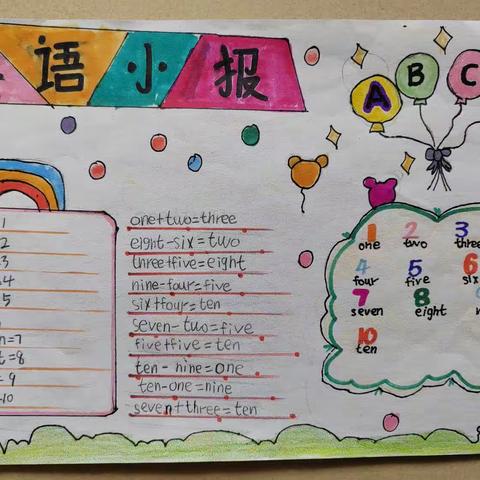 语小报
A B C
1
2
3
4
5
n=7
t=8
9
10
one+two=three
eight-six=two
three+five=eight
nine-four=five
six+four=ten
seven-two=five
five+five=ten
ten-nine=one
ten-one=nine
seven+three=ten
1 2 3
one two three
4 5 6
four five six
7 8
seven eight
10
ten